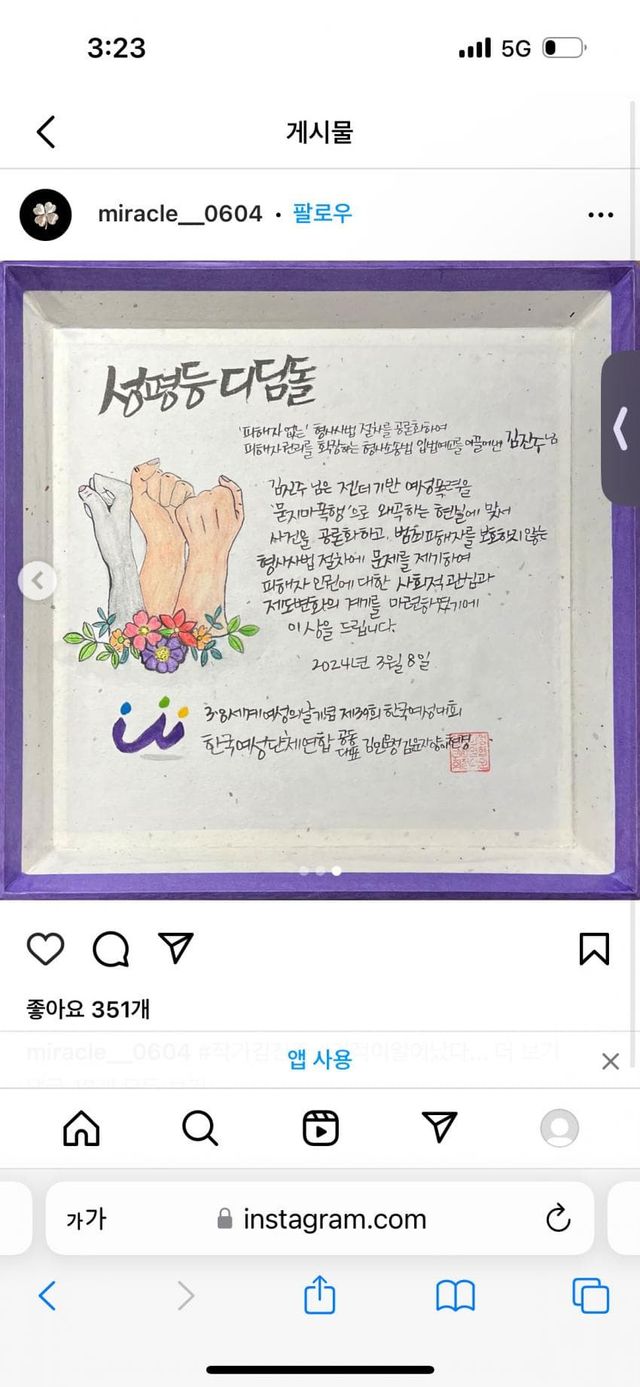 3:23
5G
게시물
miracle__0604 • 팔로우
성평등 디딤돌
'피해자 없는' 형사사법 절차를 공론화하여
피해자 권리를 확장하는 형사소송법 입법예고를 이끌어낸 김진주님
김진주 님은 젠더기반 여성폭력을
'묻지마폭행'으로 왜곡하는 현실에 맞서
사건을 공론화하고, 범죄피해자를 보호하지 않는
형사사법 절차에 문제를 제기하여
피해자 인권에 대한 사회적 관심과
제도변화의 계기를 마련하였기에
이 상을 드립니다.
2024년 3월 8일
3·8세계여성의날기념 제39회 한국여성대회
한국여성단체연합 공동
대표 김민문정 김윤자 양이현경
좋아요 351개
miracle__0604 #작가김진주
더 보기
앱 사용
가가
instagram.com